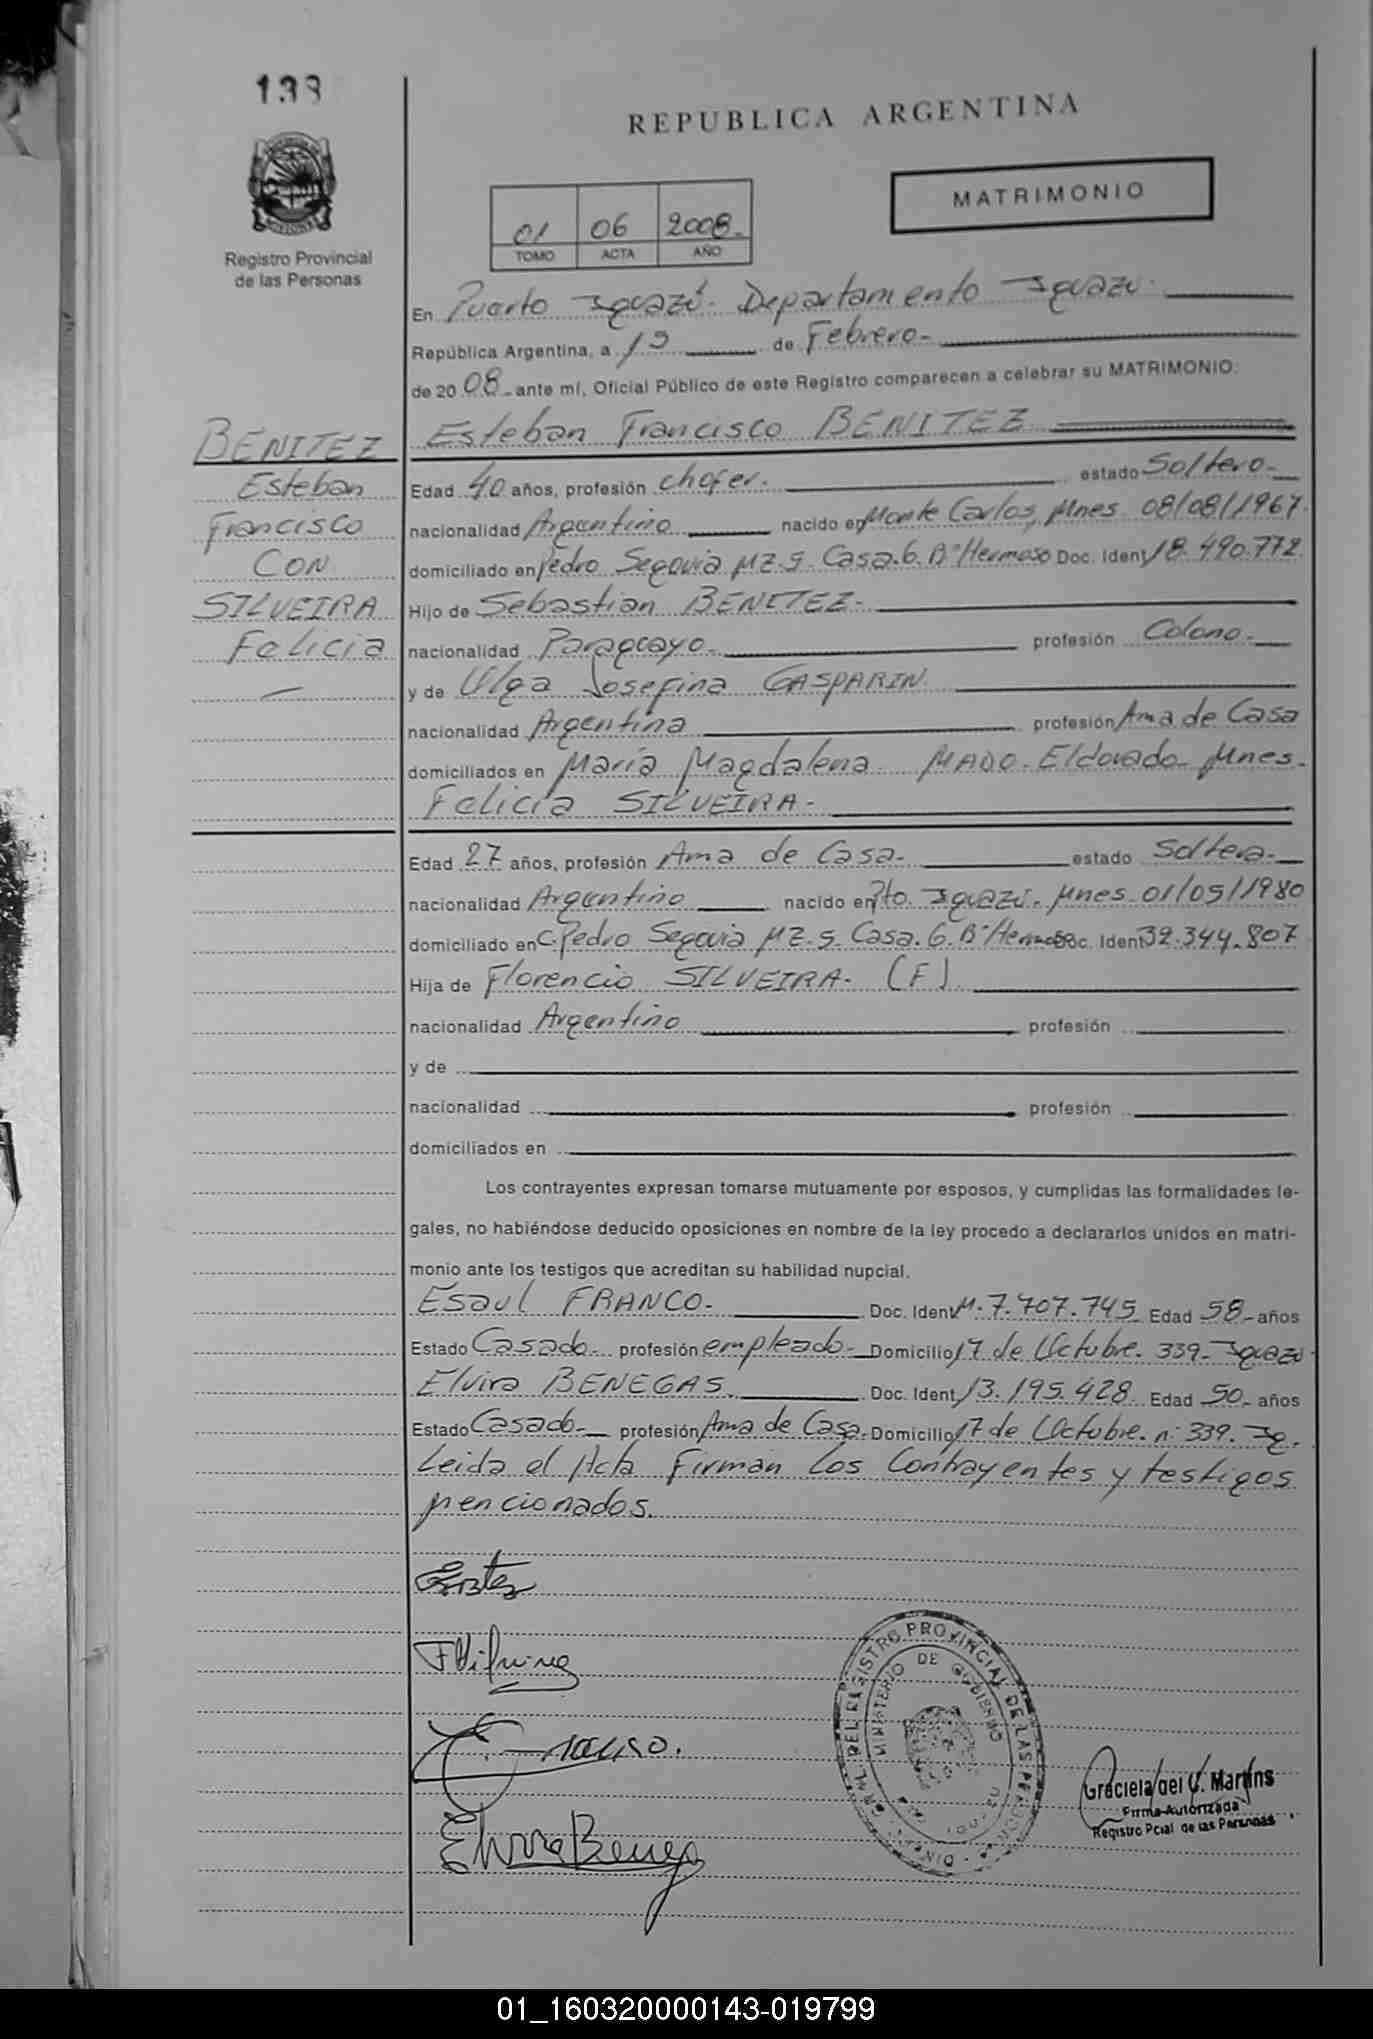 133
REPUBLICA ARGENTINA
MATRIMONIO
Registro Provincial
de las Personas
01 06 2008.
TOMO ACTA AÑO
En Puerto Iguazú. Departamento Iguazú.
República Argentina, a 19 de Febrero.
de 20 08 ante mí, Oficial Público de este Registro comparecen a celebrar su MATRIMONIO:
BENITEZ
Esteban
Francisco
CON
SILVEIRA
Felicia
Esteban Francisco BENITEZ
Edad 40 años, profesión chofer. estado Soltero.
nacionalidad Argentino nacido en Monte Carlos, Mnes. 08/08/1967.
domiciliado en Pedro Segovia MZ. 9. Casa. 6. Bº Hermoso Doc. Ident 18.490.772.
Hijo de Sebastian BENITEZ.
nacionalidad Paraguayo. profesión Colono.
y de Olga Josefina GASPARIN.
nacionalidad Argentina profesión Ama de Casa
domiciliados en María Magdalena. MADO. Eldorado. Mnes.
Felicia SILVEIRA.
Edad 27 años, profesión Ama de Casa. estado Soltera.
nacionalidad Argentino nacido en Pto. Iguazú. Mnes. 01/05/1980
domiciliado en C. Pedro Segovia MZ. 9. Casa. 6. Bº Hermoso Doc. Ident 32.344.807
Hija de Florencio SILVEIRA. (F)
nacionalidad Argentino profesión
y de
nacionalidad profesión
domiciliados en
Los contrayentes expresan tomarse mutuamente por esposos, y cumplidas las formalidades le-
gales, no habiéndose deducido oposiciones en nombre de la ley procedo a declararlos unidos en matri-
monio ante los testigos que acreditan su habilidad nupcial.
Esaul FRANCO. Doc. Ident M. 7.707.745 Edad 58 años
Estado Casado. profesión empleado. Domicilio 17 de Octubre. 339. Iguazú.
Elvira BENEGAS. Doc. Ident 13.195.428 Edad 50 años
Estado Casado. profesión Ama de Casa. Domicilio 17 de Octubre. nº 339. Ig.
Leida el Acta Firman los Contrayentes y testigos
mencionados.
Elvira Beneg
DIREC. GRAL. DEL REGISTRO PROVINCIAL DE LAS PERSONAS
MINISTERIO DE GOBIERNO
Graciela del C. Martins
Firma Autorizada
Registro Pcial de las Personas
01_160320000143-019799